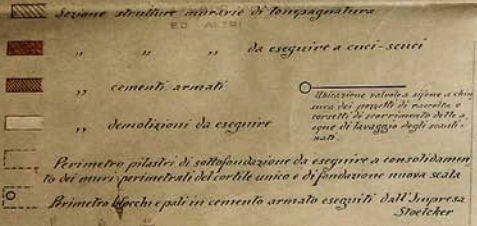 Sezione strutture murarie di tompagnatura
ED ALTRI
" " " da eseguire a cuci-scuci
" cementi armati
Ubicazione valvole a sifone a chiu
sura dei pozzetti di raccolta e
corsetti di scorrimento delle a
cque di lavaggio degli scanti-
nati.
" demolizioni da eseguire
Perimetro pilastri di sottofondazione da eseguire a consolidamen
to dei muri perimetrali del cortile unico e di fondazione nuova scala
Perimetro blocchi e pali in cemento armato eseguiti dall'Impresa
Stoelcker